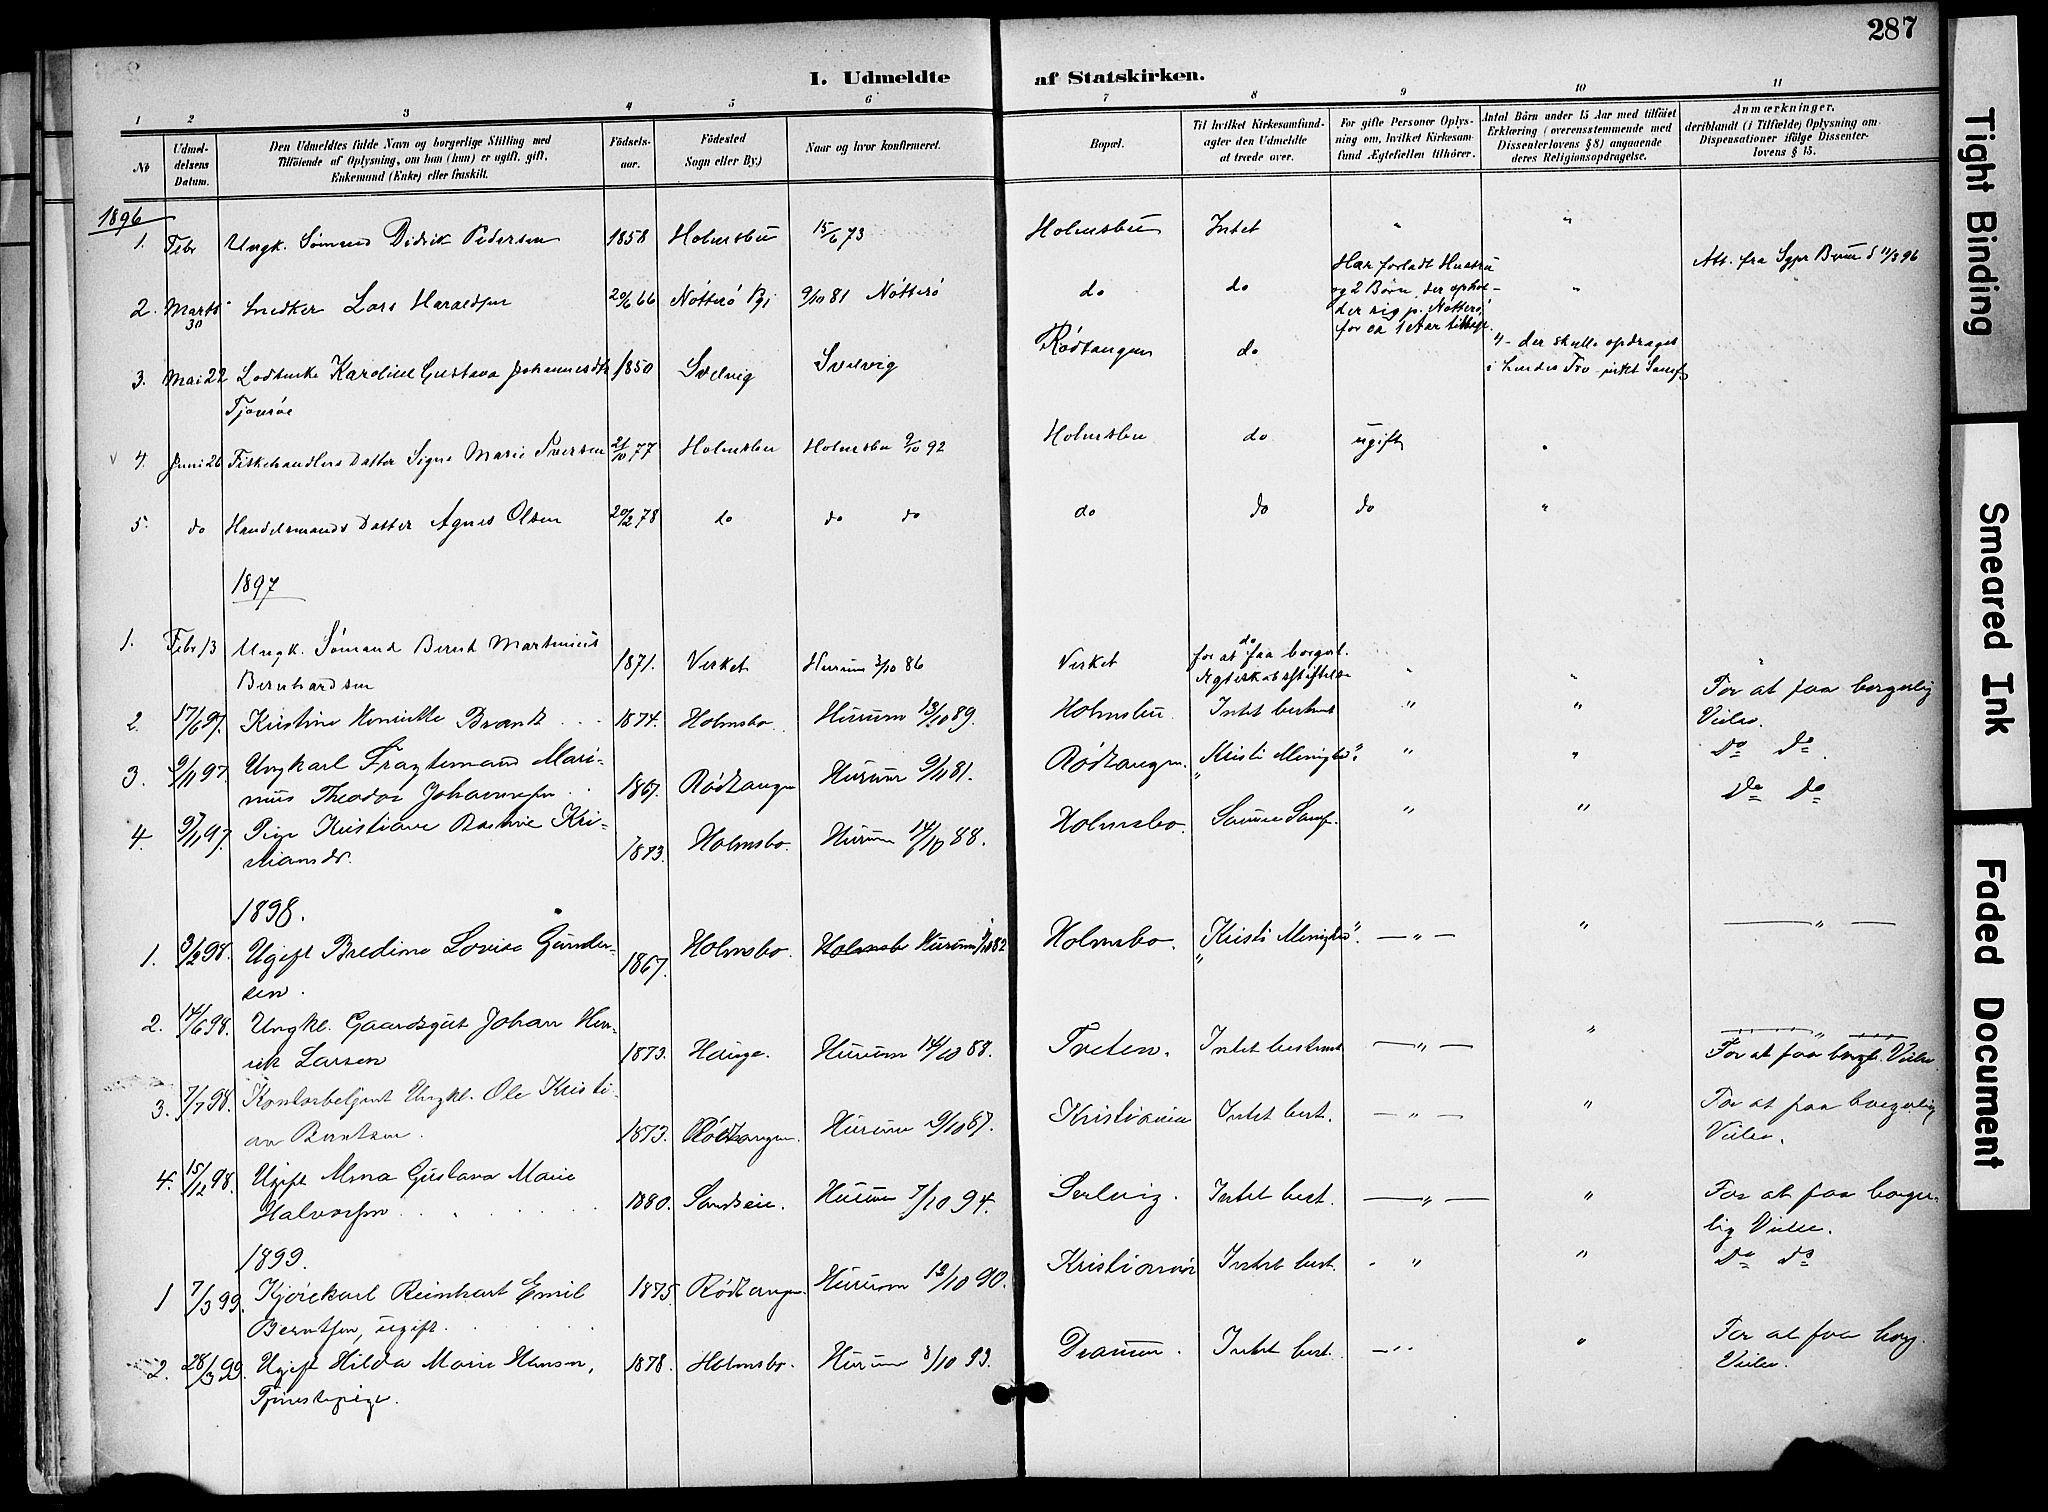 287
I. Udmeldte af Statskirken.
1 2 3 4 5 6 7 8 9 10 11
No
Udmel-
delsens
Datum.
Den Udmeldtes fulde Navn og borgerlige Stilling med
Tilføiende af Oplysning, om han (hun) er ugift, gift,
Enkemand (Enke) eller fraskilt.
Fødsels-
aar.
Fødested
Sogn eller By.)
Naar og hvor konfirmeret.
Bopæl.
Til hvilket Kirkesamfund-
agter den Udmeldte
at træde over.
For gifte Personer Oplys-
ning om, hvilket Kirkesam-
fund Ægtefællen tilhører.
Antal Børn under 15 Aar med tilføiet
Erklæring (overensstemmende med
Dissenterlovens § 8) angaaende
deres Religionsopdragelse.
Anmærkninger,
deriblandt (i Tilfælde) Oplysning om
Dispensationer ifølge Dissenter-
lovens § 15.
1896
1. Febr Ungk. Sømand Didrik Pedersen 1858 Holmsbu 15/6 73 Holmsbu Intet " "
2. Marts 30 Snedker Lars Haraldsen 20/6 66 Nøtterø 9/10 81 Nøtterø do do
Har forladt Hustru
og 2 Børn, der ophol-
der sig p. Nøtterø
for ca 1 Aar tilbage.
"
Att. fra Sgpr 11/3 96
3. Mai 22 Karoline Gustava Johannesdtr 1850 Svelvig Svelvig Rødtangen do
"- der skulle opdrages
i hendes Tro
4. Juni 26 Fiskehandlers Datter Signe Marie Iversen 21/10 77 Holmsbu Holmsbu 9/10 92 Holmsbu do ugift "
5. do Handelsmands Datter Agnes Olsen 20/2 78 do do do do do do "
1897
1. Febr 13 Ungk. Sømand Bernt Martinius
Bernhardsen 1871. Verket Hurum 3/10 86 Verket do
for at faa borgerl.
" " "
2. 17/6 97. Kristine Henriette Brandt 1874. Holmsbo. Hurum 13/10 89. Holmsbu Intet bestemt " "
For at faa borgerlig
Vielse.
3. 9/11 97. Ungkarl Fragtemand Mari-
nius Theodor Johannesen 1867. Rødtangen Hurum 9/10 81. Rødtangen. "Kristi Menighed". " " Do Do.
4. 97. Pige Kristiane Kri-
stiansdr. 1873. Holmsbo. Hurum 14/10 88. Holmsbo. Samme Samf. " " Do Do
1898.
1. 3/2 98. Ugift Bredine Lovise Gunder-
sen. 1867. Holmsbo. Hurum 82 Holmsbo. "Kristi Menighed". — " — " — " —
2. 14/6 98. Ungkl. Gaardsgut Johan Hen-
rik Larsen 1873. Hauge. Hurum 14/10 88. Tveten. Intet bestemt — " — "
For at faa borgl. Vielse.
3. 7/7 98. Kontorbetjent Ungkl. Ole Kristi-
an Berntsen. 1873. Rødtangen. Hurum 9/10 87. Kristiania Intet best. — " — "
For at faa borgerlig
Vielse.
4. 15/12 98. Ugift Gustava Marie
Halvorsen 1880. Sandseie. Hurum 7/10 94. Selvig. Intet best. — " — "
For at faa borger-
lig Vielse.
1899.
1 7/3 99. Kjørekarl Reinhart Emil
Berntsen, ugift. 1875. Rødtangen. Hurum 12/10 90. Kristiania Intet best. " " Do Do
2. 28/3 99. Ugift Hilda Marie Hansen,
Tjenestepige. 1878. Holmsbo. Hurum 8/10 93. Drammen. Intet best. — " "
For at faa borg.
Vielse.
Tight Binding
Smeared Ink
Faded Document